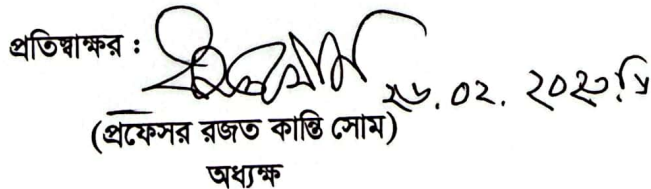 প্রতিস্বাক্ষর :
২৬.০২.২০২৩খ্রি
(প্রফেসর রজত কান্তি সোম)
অধ্যক্ষ